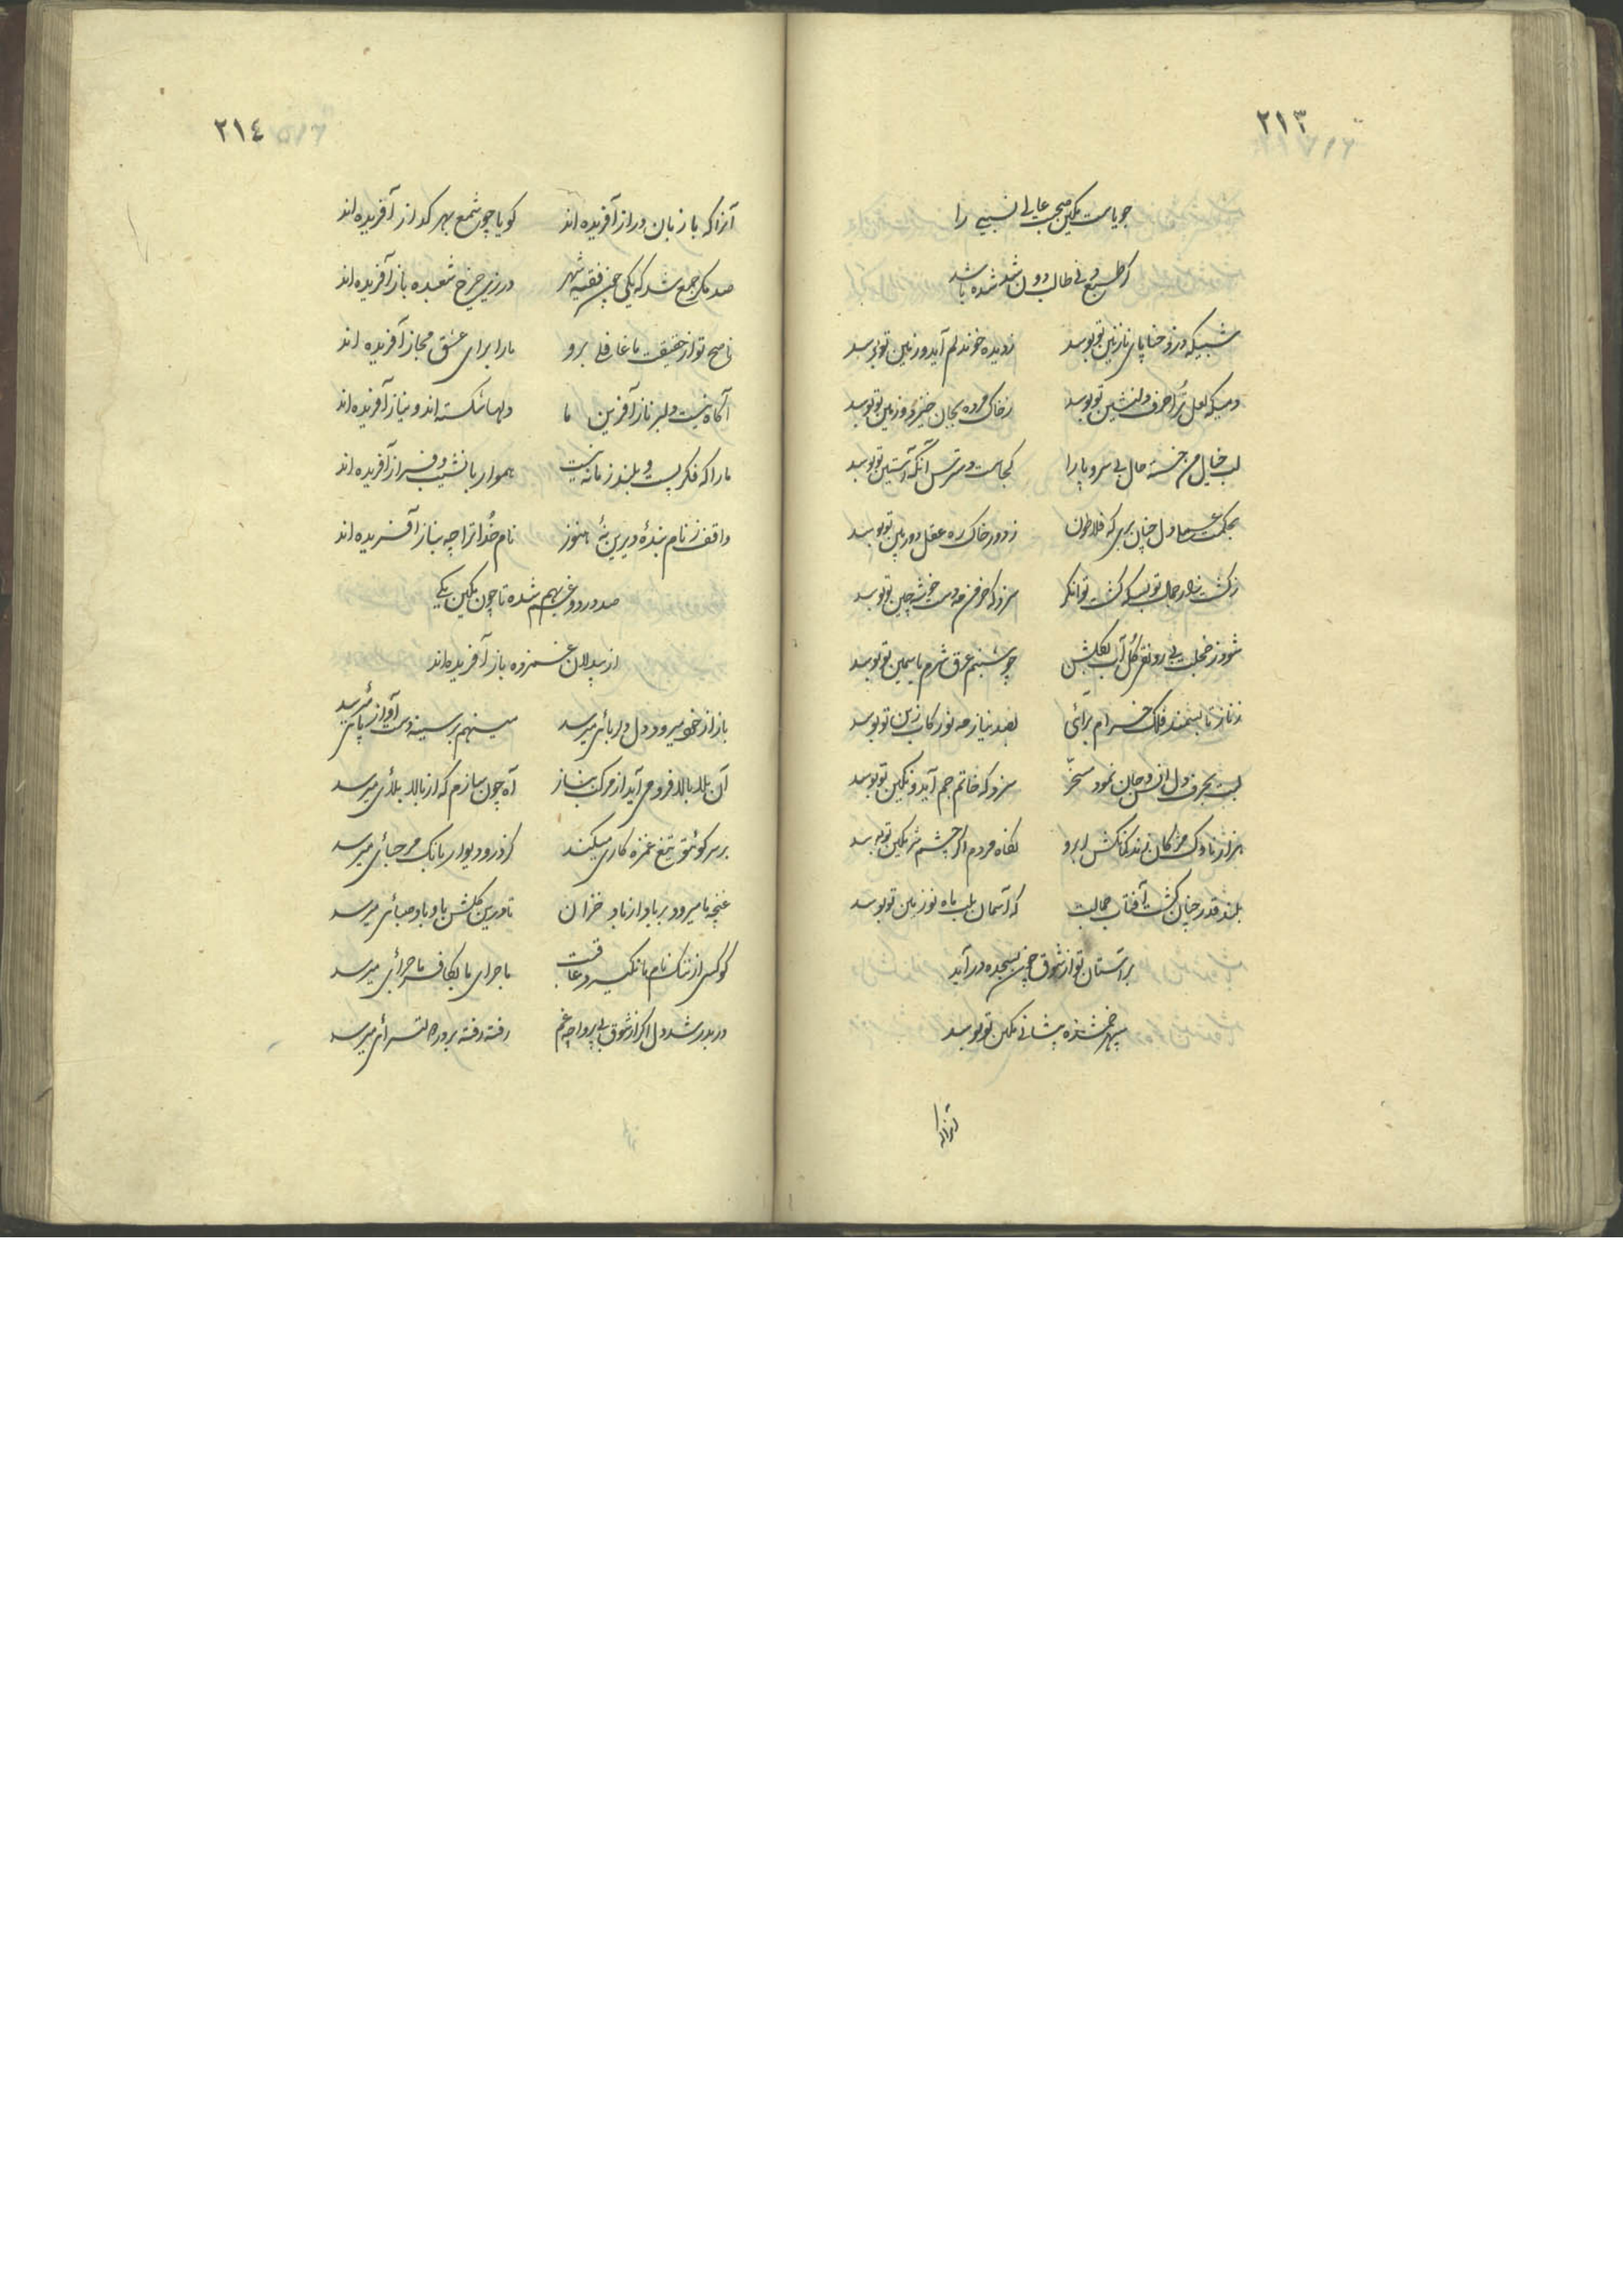 ٢١٣
جویاست مکین صحبت عالی نسبی را
شبیکه دزد حنا پای نازنین تو بوسد
ز دیده خون دلم آید و زمین تو بوسد
دمیکه لعل ترا حرف دلنشین تو بوسد
ز خاک مرده بجان خیزد و زمین تو بوسد
لب خیال من خسته حال بی سر و پا را
کجاست دسترس آنکه آستین تو بوسد
ز دور خاک ره عقل دوربین تو بوسد
سزد که خرمن مه دست خوشه چین تو بوسد
چو شبنم عرق شرم یاسمین تو بوسد
بصد نیاز مه نو رکاب زین تو بوسد
سزد که خاتم جم آید و نگین تو بوسد
هزار ناوک مژگان زند کمانکش ابرو
نگاه مردم اگر چشم شرمگین تو بوسد
بلند قدر چنان گشت آفتاب جمالت
که آسمان بلب ماه نو زمین تو بوسد
بر آستان تو از شوق چون بسجده درآید
سپهر خم شده پیشانی مکین تو بوسد
آنرا که
٢١٤
آنرا که با زبان دراز آفریده اند
گویا چو شمع بهر گداز آفریده اند
صد مکر جمع شد که یکی چون فقیه شهر
در زیر چرخ شعبده باز آفریده اند
ناصح تو از حقیقت ما غافلی برو
ما را برای عشق مجاز آفریده اند
آگاه نیست دلبر ناز آفرین ما
دلها شکسته اند و نیاز آفریده اند
ما را که فکر پست و بلند زمانه نیست
هموار با نشیب و فراز آفریده اند
واقف ز نام بندهٔ دیرین نهٔ هنوز
نام خدا ترا چه بناز آفریده اند
صد درد و غم بهم شده تا چون مکین یکی
از بیدلان غمزده باز آفریده اند
باز از خود میرود دل دلربائی میرسد
مینهم بر سینه دست آواز پائی میرسد
آن بلا بالا فرو می آید از مرکب بناز
آه چون سازم که از بالا بلائی میرسد
بر سر کوئیتو تیغ غمزه کاری میکند
کز در و دیوار بانگ مرحبائی میرسد
غنچهٔ ما میرود بر باد از باد خزان
تا درین گلشن باو باد صبائی میرسد
گو کس از ننگ نام ما نگیرد عاقبت
ماجرای ما بکافر ماجرائی میرسد
در بدر شد دل اگر از شوق بی پروا چه غم
رفته رفته بر در دولتسرائی میرسد